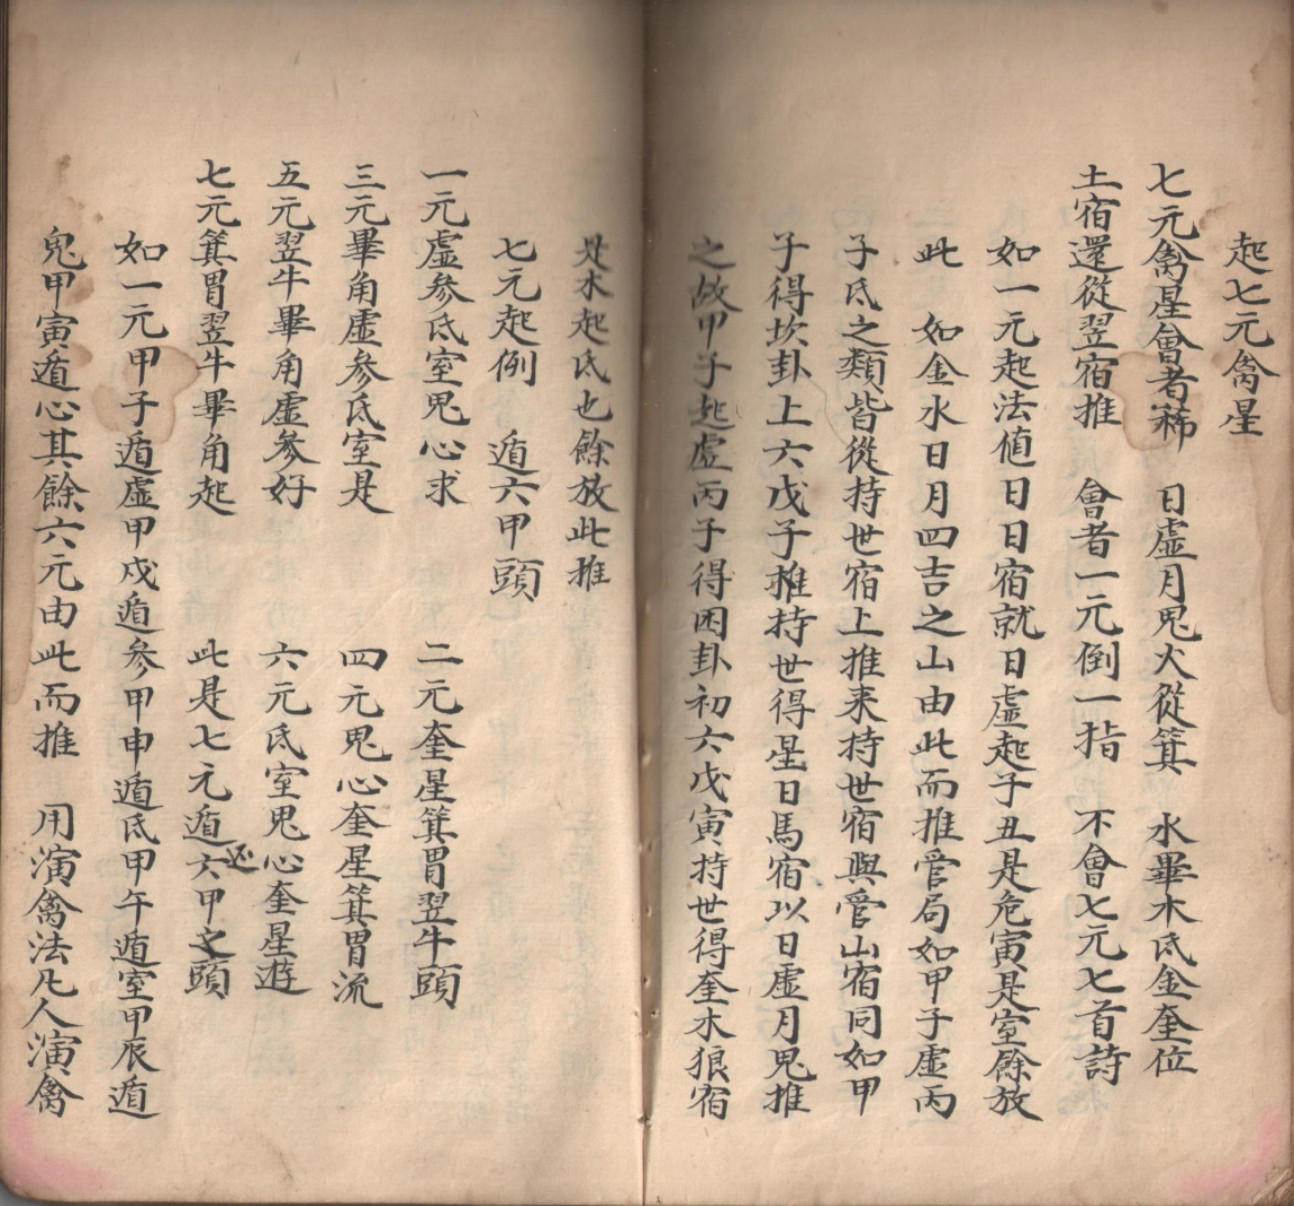 起七元禽星
七元禽星會者稀 日虛月鬼火從箕 水畢木氐金奎位
土宿還從翌宿推 會者一元倒一指 不會七元七首詩
如一元起法值日日宿就日虛起子丑是危寅是室餘放
此 如金水日月四吉之山由此而推管局如甲子虛丙
子氐之類皆從持世宿上推来持世宿與管山宿同如甲
子得坎卦上六戊子推持世得星日馬宿以日虛月鬼推
之故甲子起虛丙子得困卦初六戊寅持世得奎木狼宿
是木起氐也餘放此推
七元起例 遁六甲頭
一元虛參氐室鬼心求 二元奎星箕胃翌牛頭
三元畢角虛參氐室是 四元鬼心奎星箕胃流
五元翌牛畢角虛參好 六元氐室鬼心奎星遊
七元箕胃翌牛畢角起 此是七元遁还六甲之頭
如一元甲子遁虛甲戌遁參甲申遁氐甲午遁室甲辰遁
鬼甲寅遁心其餘六元由此而推 用演禽法凡人演禽